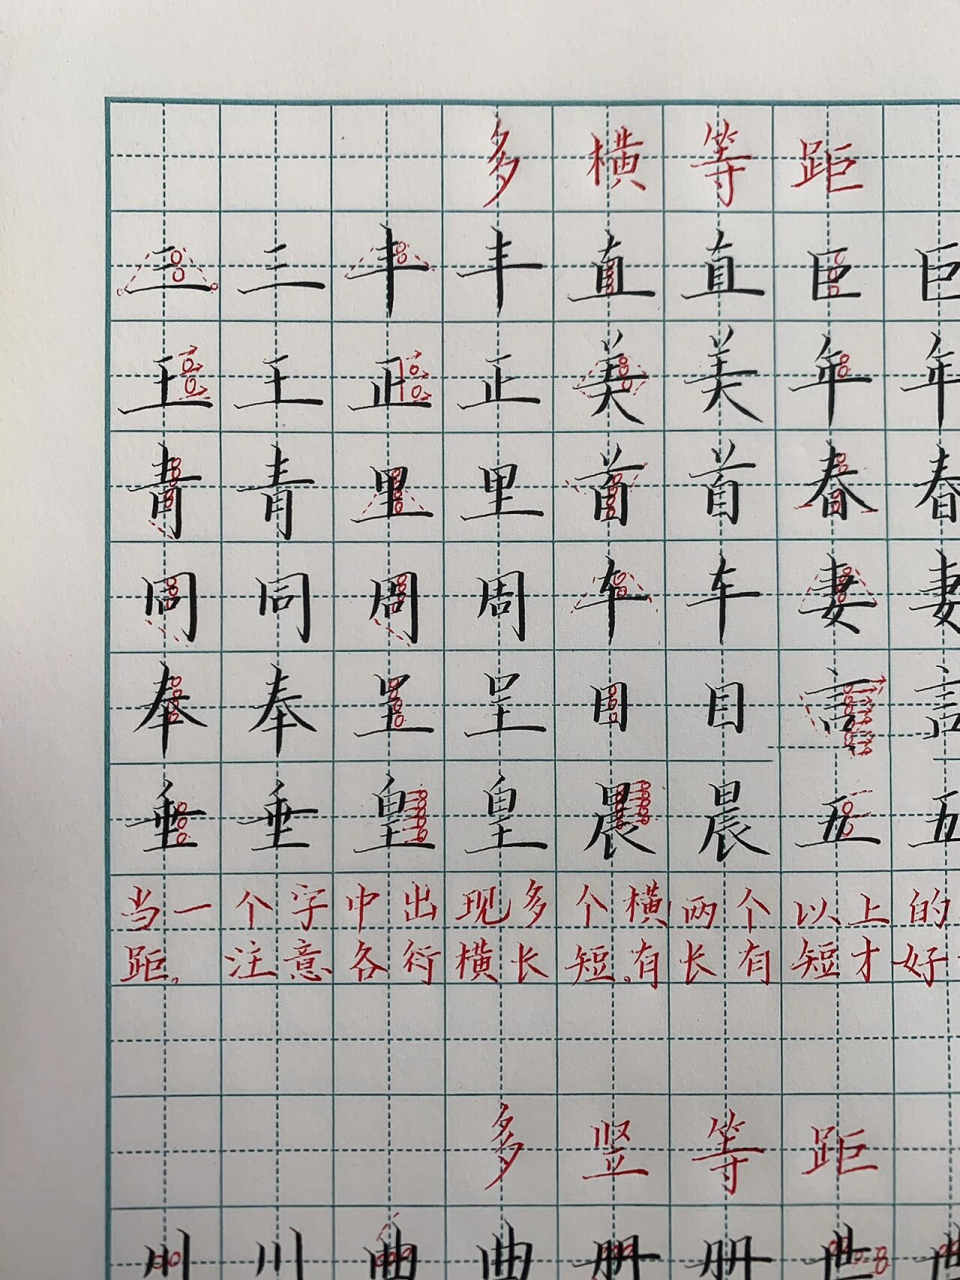 多横等距
三三丰丰直直巨巨
王王正正美美年年
青青里里首首春春
同同周周车车妻妻
奉奉呈呈目目言言
垂垂皇皇晨晨五五
当一个字中出现多个横两个以上的
距。注意各行横长短。有长有短才好
多竖等距
川川曲曲册册